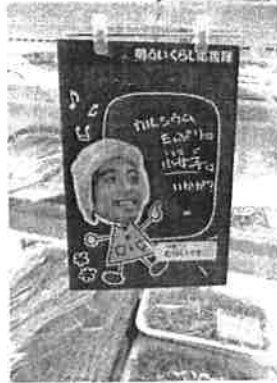 明るいくらし応援隊
カルシウム
たっぷり。
小女子。
いかが?